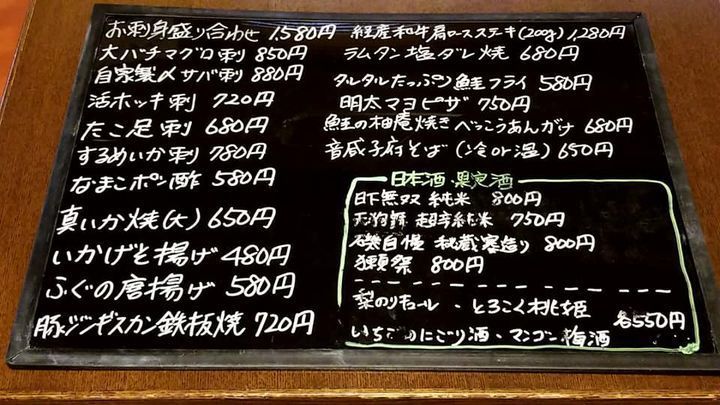 お刺身盛り合わせ 1,580円
大バチマグロ刺 850円
自家製〆サバ刺 880円
活ホッキ刺 720円
たこ足刺 680円
するめいか刺 780円
なまこポン酢 580円
真いか焼(大) 650円
いかげそ揚げ 480円
ふぐの唐揚げ 580円
豚ジンギスカン鉄板焼 720円
経産和牛肩ロースステーキ(200g) 1,280円
ラムタン塩ダレ焼 680円
タルタルたっぷり鮭フライ 580円
明太マヨピザ 750円
鮭の柚庵焼きべっこうあんがけ 680円
音威子府そば (冷or温) 650円
日本酒・果実酒
日下無双 純米 800円
天狗舞 超辛純米 750円
磯自慢 秘蔵寒造り 800円
獺祭 800円
梨のリキュール・とろこく桃姫
各550円
いちごのにごり酒・マンゴー梅酒